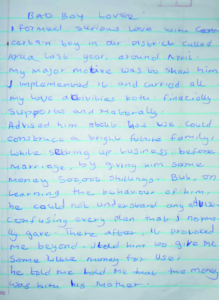 BAD BOY LOVER
I formed serious love with certain
certain boy in our district called
Arua last year, around April
My major motive was to show him
I implemented it and carried all
my love activities both financially
supports and Materially.
Advised him about how we could
construct a bright future family,
while setting up business before
Marriage, by giving him some
money 500,000 shillings. But, on
learning the behaviour of him,
he could not understand any advice
confusing every plan that I normal
ly gave There after, it provoked
me beyond. I told him to give me
Some little money for use,
he told me told me that the money
was with his Mother.